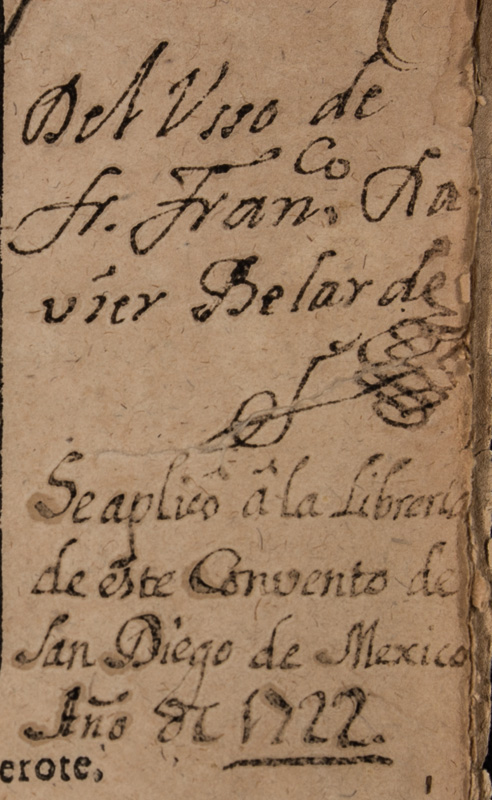 Del Vsso de
fr. Fran.co Xa
vier Belarde
Se aplicô â la Libreria
de este Convento de
San Diego de Mexico
Año de 1722.
erote,